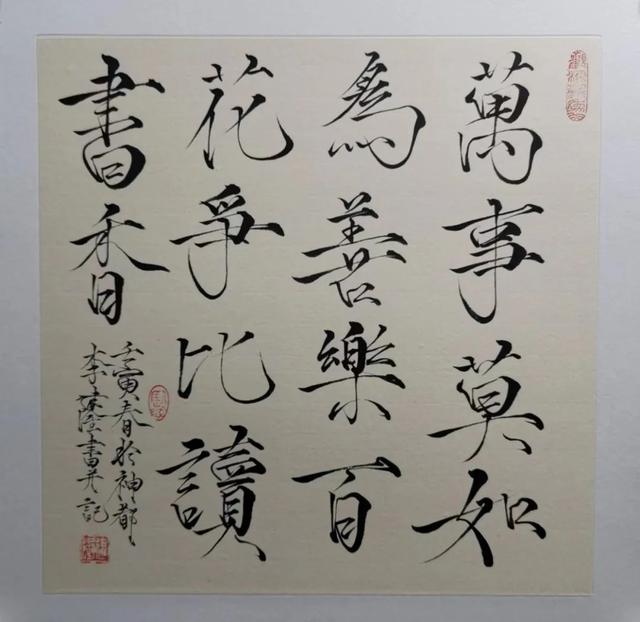 萬事莫如
為善樂百
花爭比讀
書香
壬寅春於神都
李隆書并記